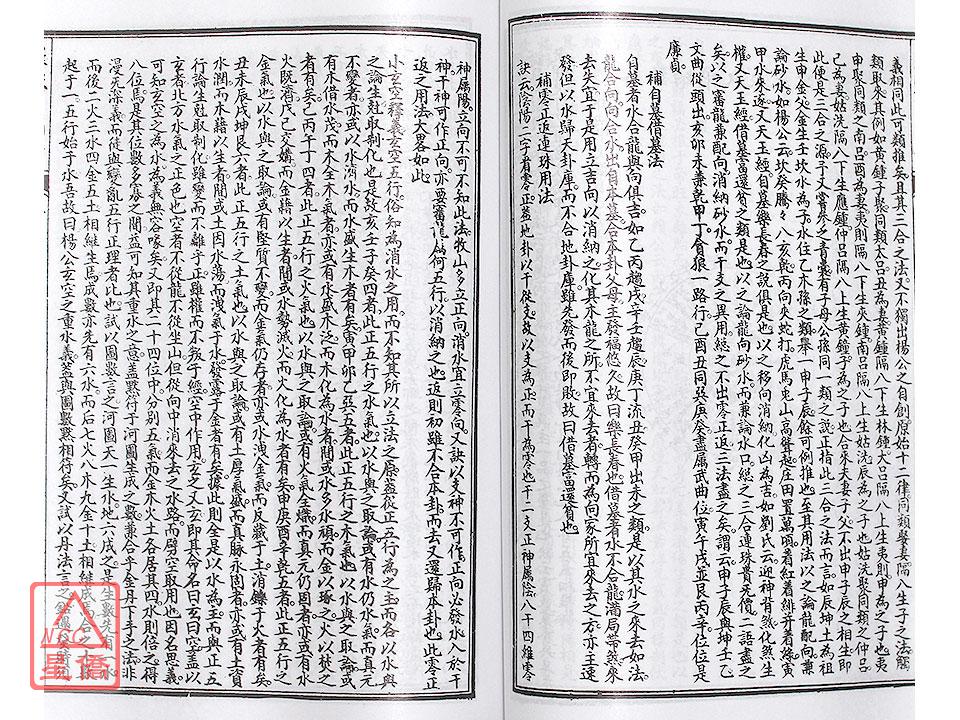 義相同此可類推矣且其三合之法又不獨出楊公之自創原始十二律同類娶妻隔八生子之法壓
類取來其例如黃鍾子娶同類太呂丑為妻黃鍾隔八下生林鍾太呂隔八上生夷則申為之子也夷
申娶同類之南呂酉為妻夷則隔八下生夾鍾南呂隔八上生姑洗辰為之子也姑洗娶同類之仲呂
己為妻姑洗隔八下生應鍾仲呂隔八上生黃鍾子為之子也合來夫妻子父不出申子辰之相生即
此便是三合之源子父
生申金父金生壬坎水為子水住乙木孫之類舉一申子辰餘可例推也至其用法以之論龍配向兼
論砂水如楊公云坎癸騰
甲水來逐又天玉經自墓樂長春之說俱是也以之移向消納化凶為吉如劉氏云迎神背煞化煞生
權又天玉經借墓富還貧之類是也以之論龍向砂水而兼論水口總之三合連珠貴無價二語盡之
矣以之審龍兼配向消納砂水而干支之異用總之不出零正返三法盡之矣然
文曲從頭出亥卯未兼乾甲丁貪狼一路行己酉丑同巽庚癸盡屬武曲位寅午戌並艮丙辛位位是
廉貞
補自墓借墓法
自墓者水合龍與向俱吉如乙丙趨戌辛壬趨辰庚丁流丑癸甲出未之類是以其水之來去如
龍合向向合水出自本墓合本卦父母主發福悠久故曰樂長春也借墓者水不合龍滿局帶煞來
去失宜于是用立吉向以消納之化其本龍之所不宜來去者轉而為向家所宜來去之方亦主速
發但以水歸天卦庫而不合地卦庫雖先發而後即敗故曰借墓富還貧也
補零正返連珠用法
訣云陰陽二字看零正蓋地卦以干從支故以支為正而干為零也十二支正神屬陰八干四維零
神屬陽立向不可不知此法收山多立正向消水宜立零向又訣以支神不可作正向必發水入於干
神干神可作正向亦要審龍屬何五行以消納之也返則初雖不合本卦而去又還歸本卦也此零正
返之用法大畧如此
小玄空釋義玄空五行俗知為消水之用而不知其所以立法之原蓋從正五行為之主而各以水與
之論生尅取制化也是故亥壬子癸四者此正五行之水氣也以水與之取論或有水仍水氣而真元
不變者亦或以水濟水而水盛生木者有矣寅甲卯乙巽五者此正五行之木氣也以水與之取論或
有木借水茂而木全木氣者亦或有水盛木泛而木化為水者亦或有水多水頑而金以琢之火以焚之
者有矣己丙午丁四者此正五行之火氣也以水與之取論或有火氣全熾而真元仍固者亦或有水
火既濟戊己交媾而金藉以生者間或水勢滅火而火化為水者有矣申庚酉辛乾五者此正五行之
金氣也以水與之取論或有堅質不變而金氣仍存者亦或水洩金氣而反藏于土消鑠于火者有矣
丑未辰戌坤艮六者此正五行之土氣也以水與之取論或有土厚氣盛而真脉永固者亦或有土資
水潤而木藉以生者間或土因水蕩而洩氣于水發露于金者有矣據此則全是以水為主而與正五
行論生尅取制化雖變而不離乎正雖權而不叛乎經空中作用玄之又玄即其命名曰玄曰空蓋以
玄者北方水氣之正色也空者不從龍不從坐山但從向中消來去之水路而劈空取用也因名思義
可知玄空之為水為義無容喙矣又即其二十四位中分別五氣而金木火土各居其四水則倍之得
八位焉是其位數多寡之間益可知其重水之意蓋默符于河圖生成之數兼合乎金丹下手之法非
漫無深義而徒與變亂五行正理者比也試以圖數言之河圖天一生水地六成之是生數先有一水
而後二火三水四金五土相継生焉成數亦先有六水而后七火八木九金十土相継成焉合之
起于一五行始于水吾故曰楊公玄空之重水義蓋與圖數默相符矣又試以丹法言之